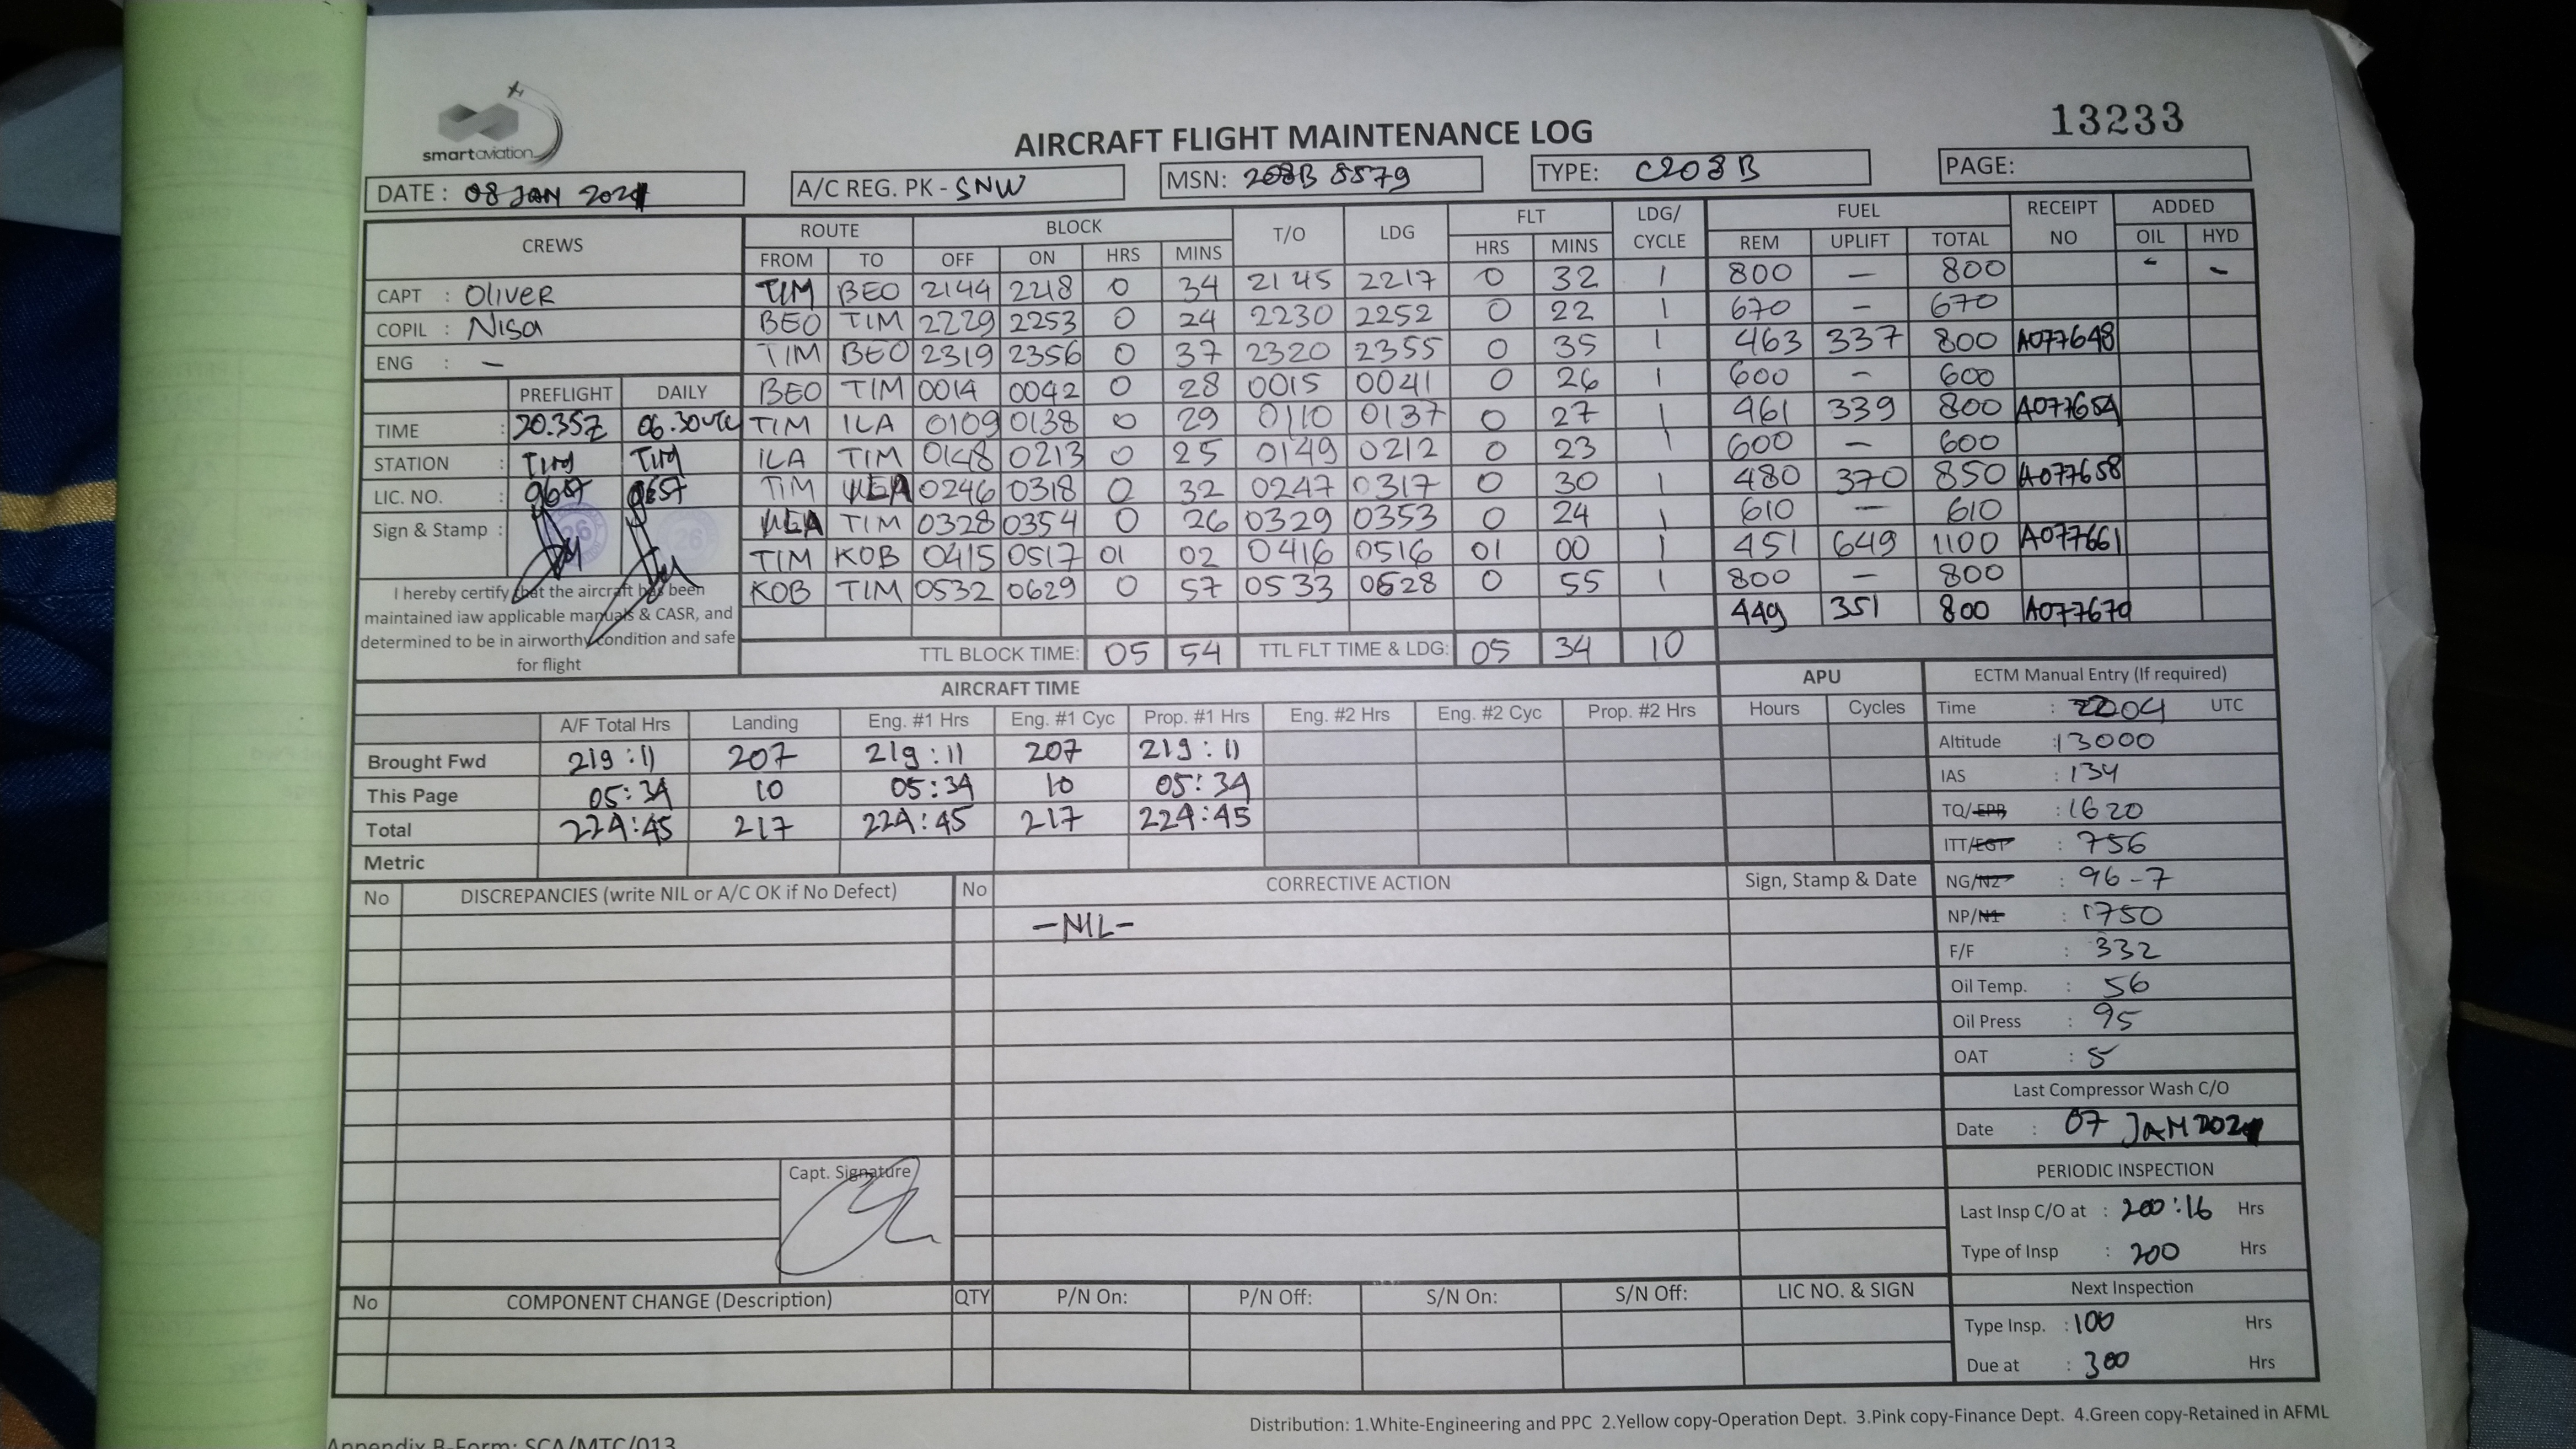 smart aviation
AIRCRAFT FLIGHT MAINTENANCE LOG
13233
DATE : 08 JAN 2021
A/C REG. PK - SNW
MSN: 208B 5579
TYPE: C208B
PAGE:
CREWS
CAPT : Oliver
COPIL : Nisa
ENG : —
PREFLIGHT DAILY
TIME : 20.35Z 06.30UTC
STATION : TIM TIM
LIC. NO. :
Sign & Stamp :
26 26
I hereby certify that the aircraft has been
maintained iaw applicable manuals & CASR, and
determined to be in airworthy condition and safe
for flight
ROUTE BLOCK T/O LDG FLT LDG/ CYCLE FUEL RECEIPT NO ADDED
FROM TO OFF ON HRS MINS HRS MINS REM UPLIFT TOTAL OIL HYD
TIM BEO 2144 2218 0 34 2145 2217 0 32 1 800 — 800 - -
BEO TIM 2229 2253 0 24 2230 2252 0 22 1 670 — 670
TIM BEO 2319 2356 0 37 2320 2355 0 35 1 463 337 800 A077648
BEO TIM 0014 0042 0 28 0015 0041 0 26 1 600 — 600
TIM ILA 0109 0138 0 29 0110 0137 0 27 1 461 339 800 A077654
ILA TIM 0148 0213 0 25 0149 0212 0 23 1 600 — 600
TIM 0246 0318 0 32 0247 0317 0 30 1 480 370 850 A077658
TIM 0328 0354 0 26 0329 0353 0 24 1 610 — 610
TIM KOB 0415 0517 01 02 0416 0516 01 00 1 451 649 1100 A077661
KOB TIM 0532 0629 0 57 0533 0628 0 55 1 800 — 800
449 351 800 A077670
TTL BLOCK TIME: 05 54 TTL FLT TIME & LDG: 05 34 10
AIRCRAFT TIME
APU
A/F Total Hrs Landing Eng. #1 Hrs Eng. #1 Cyc Prop. #1 Hrs Eng. #2 Hrs Eng. #2 Cyc Prop. #2 Hrs Hours Cycles
Brought Fwd 219:11 207 219:11 207 219:11
This Page 05:34 10 05:34 10 05:34
Total 224:45 217 224:45 217 224:45
Metric
No DISCREPANCIES (write NIL or A/C OK if No Defect) No CORRECTIVE ACTION Sign, Stamp & Date
—NIL—
Capt. Signature
No COMPONENT CHANGE (Description) QTY P/N On: P/N Off: S/N On: S/N Off: LIC NO. & SIGN
ECTM Manual Entry (If required)
Time : 2204 UTC
Altitude : 13000
IAS : 134
TQ/EPR : 1620
ITT/EGT : 756
NG/N2 : 96-7
NP/N1 : 1750
F/F : 332
Oil Temp. : 56
Oil Press : 95
OAT : 5
Last Compressor Wash C/O
Date : 07 JAN 2021
PERIODIC INSPECTION
Last Insp C/O at : 200:16 Hrs
Type of Insp : 200 Hrs
Next Inspection
Type Insp. : 100 Hrs
Due at : 300 Hrs
Distribution: 1.White-Engineering and PPC 2.Yellow copy-Operation Dept. 3.Pink copy-Finance Dept. 4.Green copy-Retained in AFML
Appendix B-Form: SCA/MTC/013